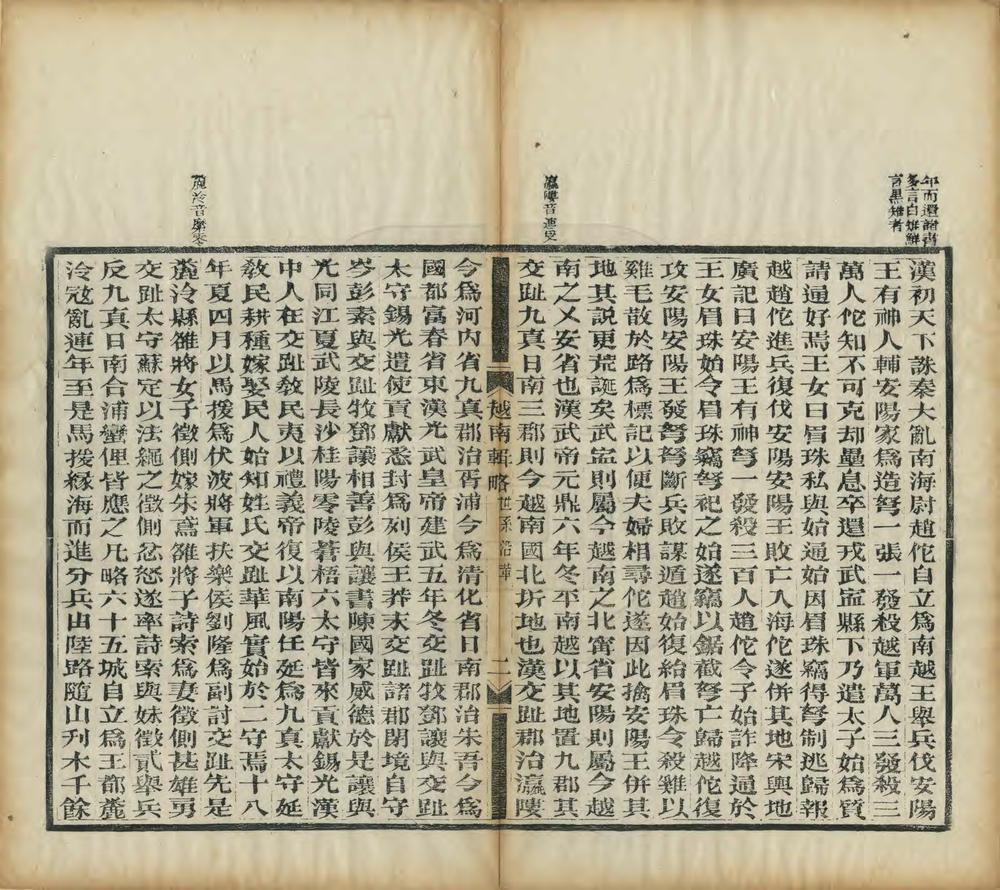 年而還諸書
多言白雉鮮
言黑雉者
漢初天下誅秦大亂南海尉趙佗自立爲南越王舉兵伐安陽
王有神人輔安陽家爲造弩一張一發殺越軍萬人三發殺三
萬人佗知不可克却壘息卒還戎武寍縣下乃遣太子始爲質
請通好焉王女曰眉珠私與始通始因眉珠竊得弩制逃歸報
越趙佗進兵復伐安陽安陽王敗亡入海佗遂併其地宋興地
廣記曰安陽王有神弩一發殺三百人趙佗令子始詐降通於
王女眉珠始令眉珠竊弩視之始遂竊以鋸截弩亡歸越佗復
攻安陽安陽王發弩弩斷兵敗謀遁趙始復紿眉珠令殺雞以
雞毛散於路爲標記以便夫婦相尋佗遂因此擒安陽王併其
地其說更荒誕矣武寍則屬今越南之北甯省安陽則屬今越
南之乂安省也漢武帝元鼎六年冬平南越以其地置九郡其
交趾九真日南三郡則今越南國北圻地也漢交趾郡治瀛𨻻
瀛𨻻音連受
越南輯略 世系沿革 二
今爲河内省九真郡治胥浦今爲清化省日南郡治朱吾今爲
國都富春省東漢光武皇帝建武五年冬交趾牧鄧讓與交趾
太守錫光遣使貢獻悉封爲列侯王莽末交趾諸郡閉境自守
岑彭素與交趾牧鄧讓相善彭與讓書陳國家威德於是讓與
光同江夏武陵長沙桂陽零陵蒼梧六太守皆來貢獻錫光漢
中人在交趾教民夷以禮義帝復以南陽任延爲九真太守延
敎民耕種嫁娶民人始知姓氏交趾華風實始於二守焉十八
年夏四月以馬援爲伏波將軍扶樂侯劉隆爲副討交趾先是
麊泠縣雒將女子徵側嫁朱鳶雒將子詩索爲妻徵側甚雄勇
交趾太守蘇定以法繩之徵側忿怒遂率詩索與妹徵貳舉兵
反九真日南合浦蠻俚皆應之凡略六十五城自立爲王都麊
泠寇亂連年至是馬援緣海而進分兵由陸路隨山刋木千餘
麊泠音麋零